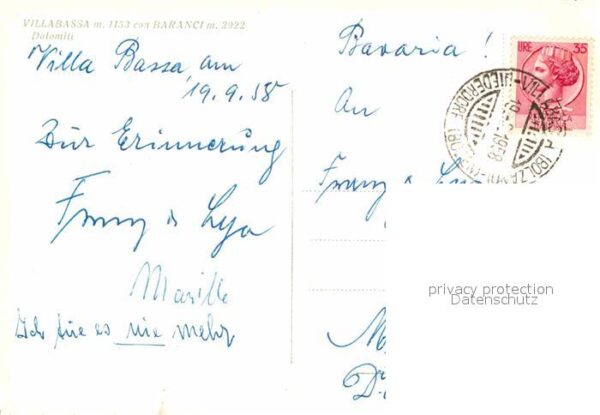 VILLABASSA m. 1153 con BARANCI m. 2922
Dolomiti
Villa Bassa, am
19.9.58
Zur Erinnerung
Franz & Lya
Ich tue es nie mehr
Bavaria!
An
Franz &
LIRE 35
NIEDERDORF
1958
privacy protection
Datenschutz